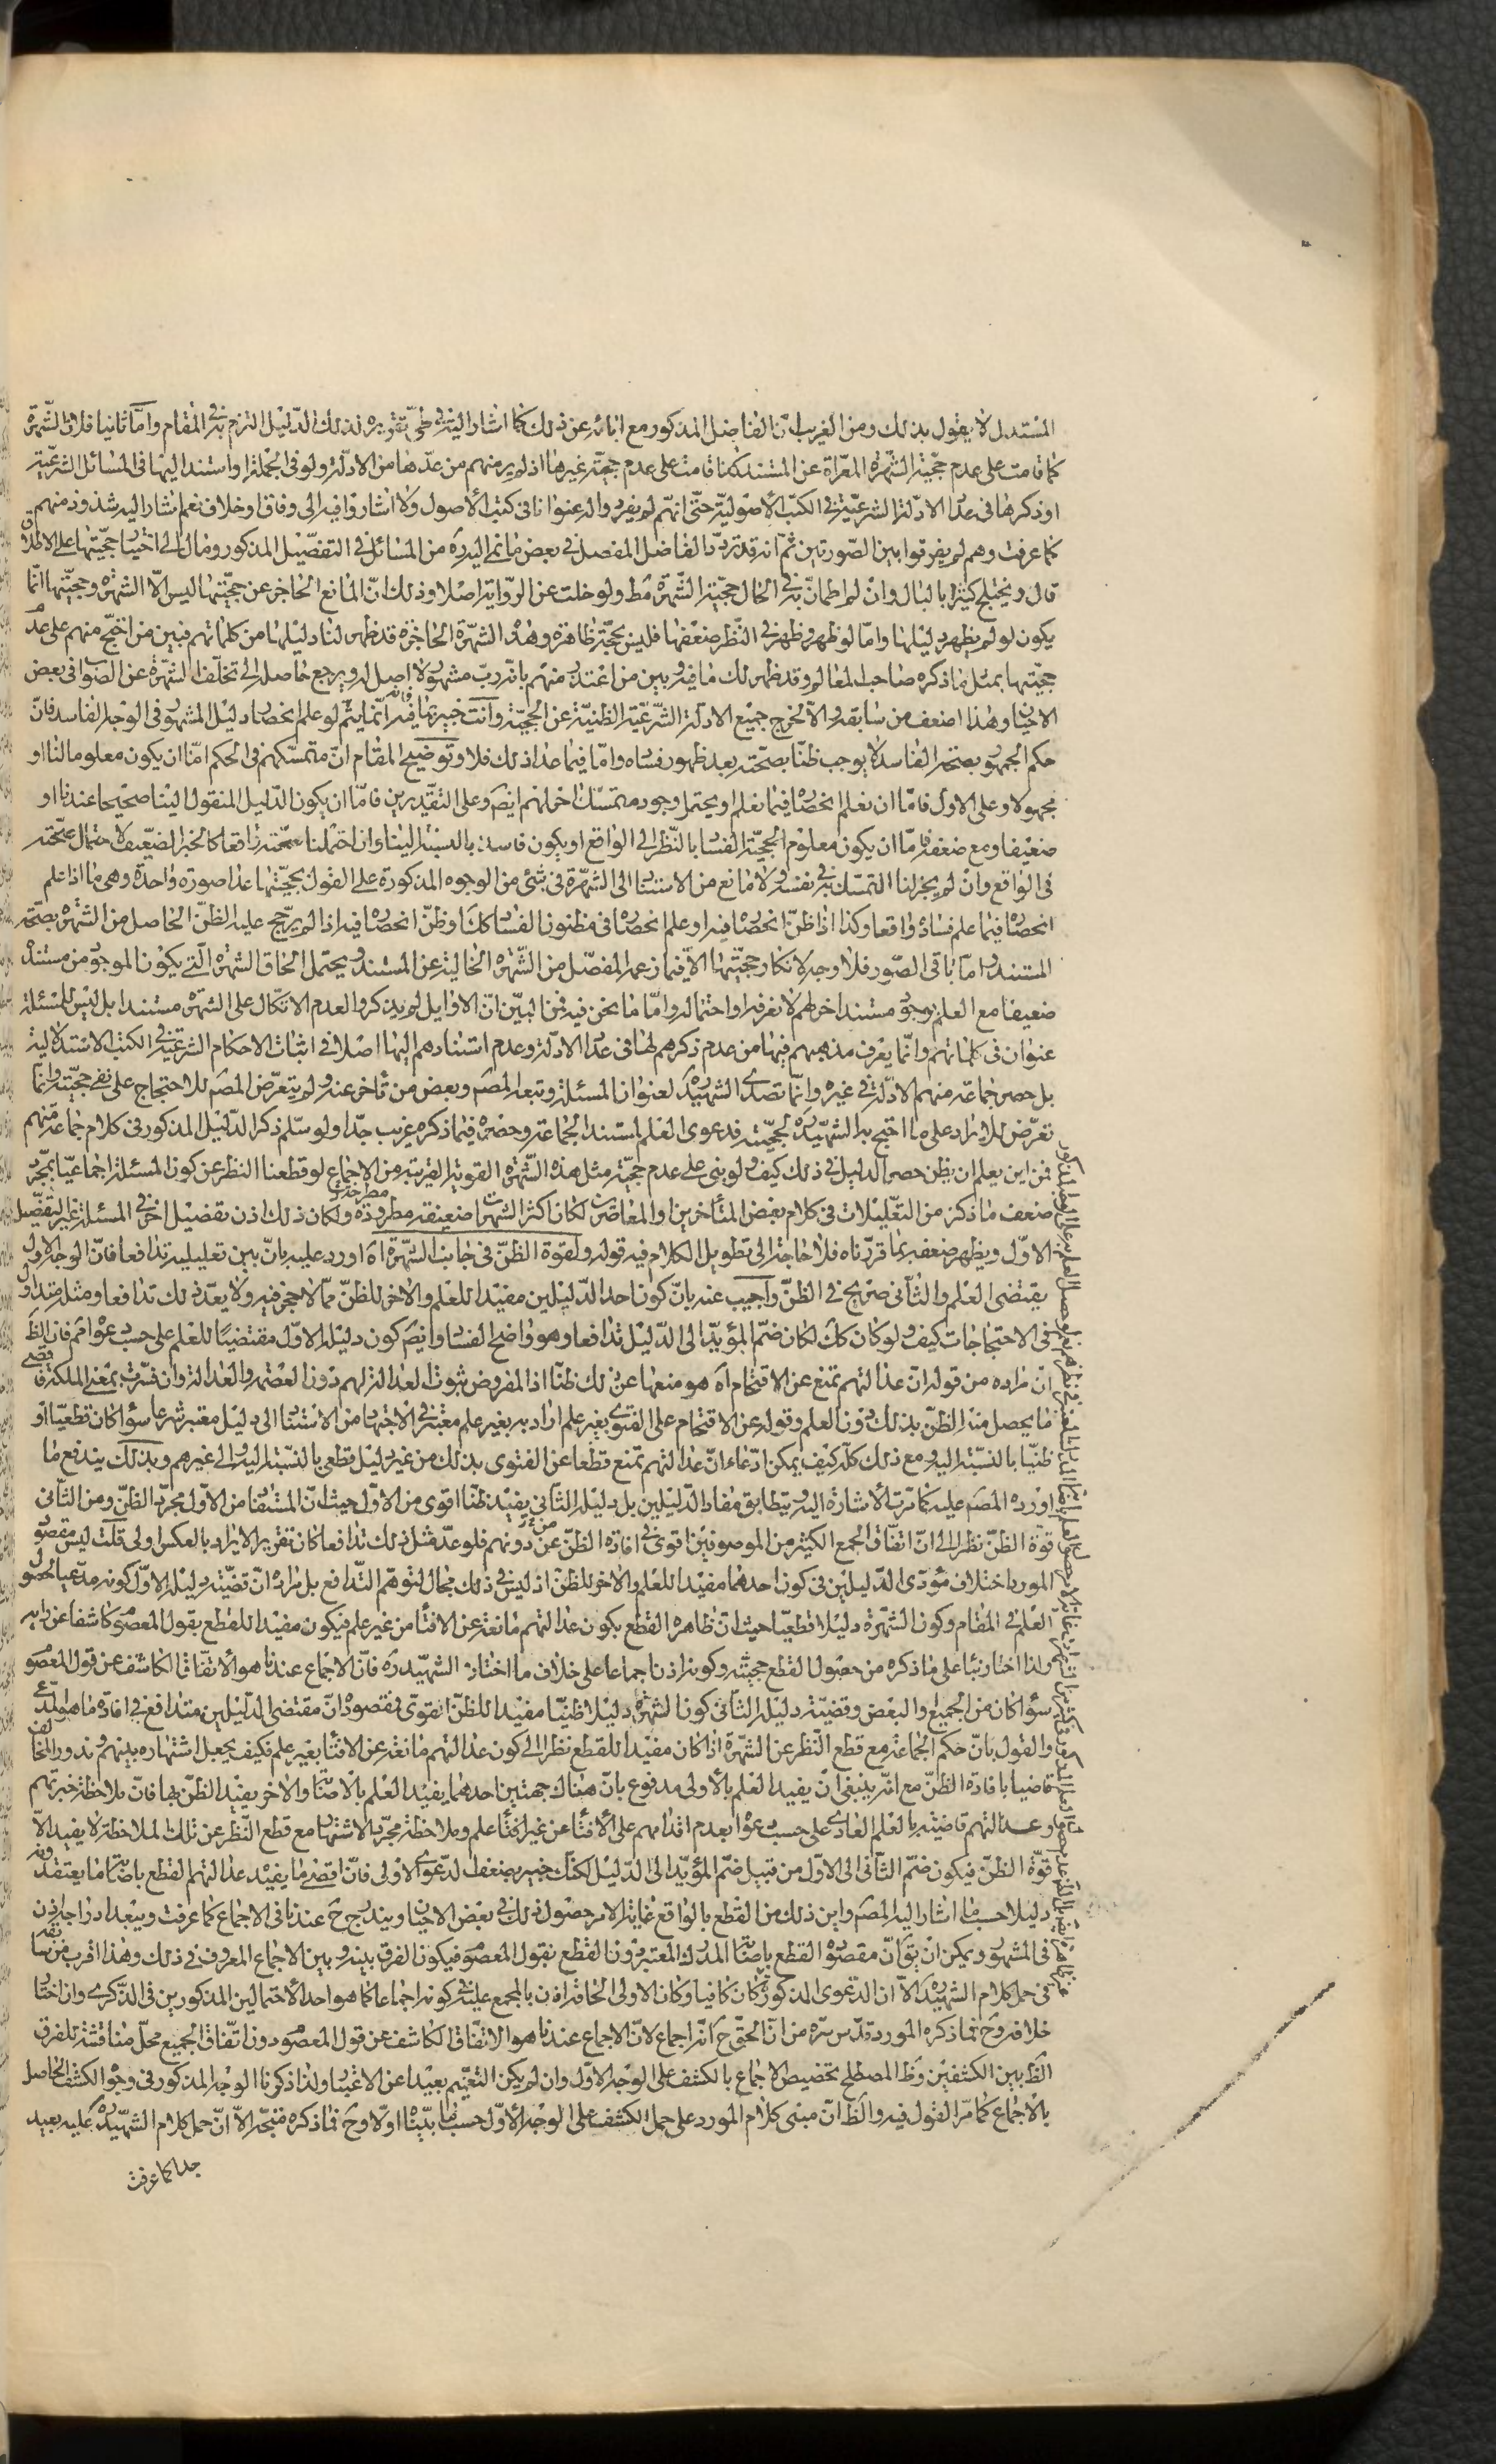 المستدل لا يقول بذلك ومن الغريب انّ الفاضل المذكور مع ابائه عن ذلك كما اشار اليه في طيّ تقويره لذلك الدّليل التزم به في المقام وامّا ثانيا فلانّ الشّهرة
كما قامت على عدم حجّية الشّهرة المعرّاة عن المستند كذا قامت على عدم حجّية غيرها اذ لم ير منهم من عدّها من الادلّة ولو في الجملة او استند اليها في المسائل الشرعيّة
او ذكرها في عداد الادلّة الشرعيّة في الكتب الأصوليّة حتّى انّهم لم يفردوا له عنوانا في كتب الأصول ولا اشاروا فيه الى وفاق او خلاف نعم اشار اليه شذوذ منهم
كما عرفت وهم لم يفرقوا بين الصّورتين ثمّ انّه قد تردّد الفاضل المفصل في بعض ما نمى اليه ره من المسائل في التفصّيل المذكور ومال الى اختيار حجيّتها على الاطلاق
قال ويختلج كثيرا بالبال وان لم اطمانّ به في الحال حجيّة الشّهرة مط ولو خلت عن الرّواية اصلا وذلك انّ المانع الحاجز عن حجيّتها ليس الّا الشهرة وحجيّتها انّما
يكون لو لم يظهر دليلها وامّا لو ظهر وظهر في النّظر ضعفها فليس بحجّة ظاهرة وهذه الشهرة الحاجزة قد ظهر لنا دليلها من كلماتهم فبين من احتجّ منهم على عدم
حجيّتها بمثل ما ذكره صاحب المعالم وقد ظهر لك ما فيه وبين من اعتذر منهم بانّه ربّ مشهور لا اصل له ويرجع حاصله الى تخلّف الشهرة عن الصّواب في بعض
الاحيان وهذا اضعف من سابقه والّا لخرج جميع الادلّة الشّرعيّة الظنيّة عن الحجيّة وانت خبير بما فيه فانّه انّما يتمّ لو علم انحصار دليل المشهور في الوجه الفاسد فانّ
حكم الجمهور بصحّة الفاسد لا يوجب ظنّا بصحّته بعد ظهور فساده وامّا فيما عدا ذلك فلا وتوضيح المقام انّ متمسّكهم في الحكم امّا ان يكون معلوما لنا او
مجهولا وعلى الاول فامّا ان نعلم انحصاره فيما نعلم او يحتمل وجود متمسّك اخر لهم ايضا وعلى التقديرين فامّا ان يكون الدّليل المنقول الينا صحيحا عندنا او
ضعيفا ومع ضعفه فامّا ان يكون معلوم الفساد بالنّظر الى الواقع او يكون فاسدا بالنسبة الينا وان احتملنا صحّته واقعا كالخبر الضّعيف لاحتمال صحّته
في الواقع وان لم يجز لنا التمسّك به في نفسه ولا مانع من الاستناد الى الشّهرة في شئ من الوجوه المذكورة على القول بحجيّتها عدا صورة واحدة وهي ما اذا علم
انحصاره فيما علم فساده واقعا وكذا اذا ظنّ انحصاره فيه او علم انحصاره في مظنون الفساد كك او ظنّ انحصاره فيه اذا لم يترجّح عليه الظنّ الحاصل من الشهرة بصحّة
المستند وامّا باقي الصّور فلا وجه لانكار حجيّتها الّا فيما زعمه المفصّل من الشّهرة الخالية عن المستند ويحتمل الحاق الشهرة الّتي يكون الموجود من مستندها
ضعيفا مع العلم بوجود مستند اخر لهم لا نعرفه او احتماله وامّا ما نحن فيه فمن البيّن انّ الاوايل لم يذكروا لعدم الاتّكال على الشهرة مستندا بل ليس للمسئلة
عنوان في كلماتهم وانّما يعرف مذهبهم فيها من عدم ذكرهم لها في عداد الادلّة وعدم استنادهم اليها اصلا في اثبات الاحكام الشرعيّة في الكتب الاستدلالية
بل حصر جماعة منهم الادلّة في غيره وانّما تصدّى الشهيد ره لعنوان المسئلة وتبعه المصم وبعض من تأخر عنه ولم يتعرّض المصم للاحتجاج على نفي حجيّته وانّما
تعرّض للايراد على ما احتج به الشهيد ره لحجيّته فدعوى العلم بمستند الجماعة وحصره فيما ذكره غريب جدّا ولو سلّم ذكر الدّليل المذكور في كلام جماعة منهم
فمن اين يعلم ان يظن حصر الدليل في ذلك كيف ولو بنى على عدم حجيّة مثل هذه الشّهرة القوية القريبة من الاجماع لو قطعنا النظر عن كون المسئلة اجماعيّا بمجّرد
ضعف ما ذكر من التعّليلات في كلام بعض المتأخّرين او المعاصرين لكان اكثر الشهرات ضعيفة مطروحة ولكان ذلك اذن تفصيل اخر في المسئلة غير التفصّيل
الاوّل ويظهر ضعفه بما قرّرناه فلا حاجة الى تطويل الكلام فيه قوله ولقوة الظنّ في جانب الشّهرة اه اورد عليه بانّ بين تعليليه تدافعا فانّ الوجه الاول
يقتضى العلم والثّاني صريح في الظنّ واجيب عنه بانّ كون احد الدّليلين مفيدا للعلم والاخر للظنّ ممّا لا حجر فيه ولا يعدّ ذلك تدافعا ومثله متداول
في الاحتجاجات كيف ولو كان كك لكان ضمّ المؤيّد الى الدّليل تدافعا وهو واضح الفساد وايضا كون دليله الاوّل مقتضيا للعلم على حسب دعواه مم فان الظ
انّ مراده من قوله انّ عدالتهم تمنع عن الاقتحام اه هو منعها عن ذلك ظنّا اذ المفروض ثبوت العدالة لهم دون العصمة والعدالة وان فسّرت بمعنى الملكة فاقصى
ما يحصل منه الظنّ بذلك دون العلم وقوله عن الاقتحام على الفتوى بغير علم اراد به بغير علم معتبر في الاجتهاد من الاستناد الى دليل معتبر شرعا سواء كان قطعيّا او
ظنيّا بالنسّبة اليه ومع ذلك كلّه كيف يمكن ادّعاء انّ عدالتهم تمنع قطعا عن الفتوى بذلك من غير دليل قطعي بالنسّبة اليه او الى غيرهم وبذلك يندفع ما
اورده المصم عليه كما مرّت الاشارة اليه ويتطابق مفاد الدّليلين بل دليله الثّاني يفيد ظنّا اقوى من الاوّل حيث انّ المستفاد من الاوّل مجّرد الظنّ ومن الثّاني
قوة الظنّ نظرا الى انّ اتفّاق الجمع الكثير من الموصوفين اقوى في افادة الظنّ عن دونهم فلو عدّ مثل ذلك تدافعا كان تقرير الايراد بالعكس اولى قلت ليس مقصود
المورد اختلاف مؤدّى الدّليلين في كون احدهما مفيدا للعلم والاخر للظنّ اذ ليس في ذلك مجال لتوهّم التّدافع بل مراده انّ قضيّة دليله الاوّل كونه مدّعيا لحصول
العلم في المقام وكون الشّهرة دليلا قطعيّا حيث انّ ظاهره القطع بكون عدالتهم مانعة عن الافتاء من غير علم فيكون مفيدا للقطع بقول المعصوم كاشفا عن رايه
ولذا اختار بناء على ما ذكره من حصول القطع حجيّته وكونه اذن اجماعا على خلاف ما اختاره الشهيد ره فانّ الاجماع عندنا هو الاتفّاق الكاشف عن قول المعصوم
سواء كان من الجميع او البعض وقضيّة دليله الثّاني كون الشهرة دليلا ظنيّا مفيدا للظنّ القوى فمقصوده انّ مقتضى الدّليلين متدافع في افادة ما هو المدّعى
والقول بانّ حكم الجماعة مع قطع النّظر عن الشّهرة اذا كان مفيدا للقطع نظرا الى كون عدالتهم مانعة عن الافتاء بغير علم فكيف يجعل اشتهاره بينهم وندور المخالف
قاضيا بافادة الظنّ مع انّه ينبغي ان يفيد العلم بالأولى مدفوع بانّ هناك جهتين احدهما يفيد العلم بالاصالة والاخر يفيد الظنّ بها فانّ ملاحظة خبرتهم
وعدالتهم قاضية بالعلم العادي على حسب دعواه بعدم اقدامهم على الافتاء عن غير علم وملاحظة مجرّد الاشتهار مع قطع النّظر عن تلك الملاحظة لا يفيد الّا
قوّة الظنّ فيكون ضمّ الثّاني الى الاوّل من قبيل ضمّ المؤيّد الى الدّليل لكنّك خبير بضعف الدّعوى الاولى فانّ اقصى ما يفيد عدالتهم القطع باصابة ما يعتقدونه
دليلا حسب ما اشار اليه المصم واين ذلك من القطع بالواقع غاية الامر حصول ذلك في بعض الاحيان ويندرج ح عندنا في الاجماع كما عرفت ويبعد ادراجه اذن
في المشهور ويمكن ان يق انّ مقصوده القطع باصابة المدرك المعتبر دون القطع بقول المعصوم فيكون الفرق بينه وبين الاجماع المعروف في ذلك وهذا اقرب من سابقه
في حمل كلام الشهيد ره الّا ان الدعوى المذكورة كان كافيا وكان الاولى الحاقه اذن بالمجمع عليه في كونه اجماعا كما هو احد الاحتمالين المذكورين في الذّكرى وان اختار
خلافه وح فما ذكره المورد قدّس سّره من انّ الحقّ ح انّه اجماع لانّ الاجماع عندنا هو الاتفّاق الكاشف عن قول المعصوم دون اتّفاق الجميع محلّ مناقشة للفرق
الظ بين الكشفين وظ المصطلح تخصيص الاجماع بالكشف على الوجه الاوّل وان لم يكن التعميم بعيدا عن الاعتبار ولذا ذكرنا الوجه المذكور في وجوه الكشف الحاصل
بالاجماع كما مرّ القول فيه والظ انّ مبنى كلام المورد على حمل الكشف على الوجه الاوّل حسب ما بيّنّاه اوّلا وح فما ذكره متّجه الّا انّ حمل كلام الشهيد ره عليه بعيد
جدا كما عرفت